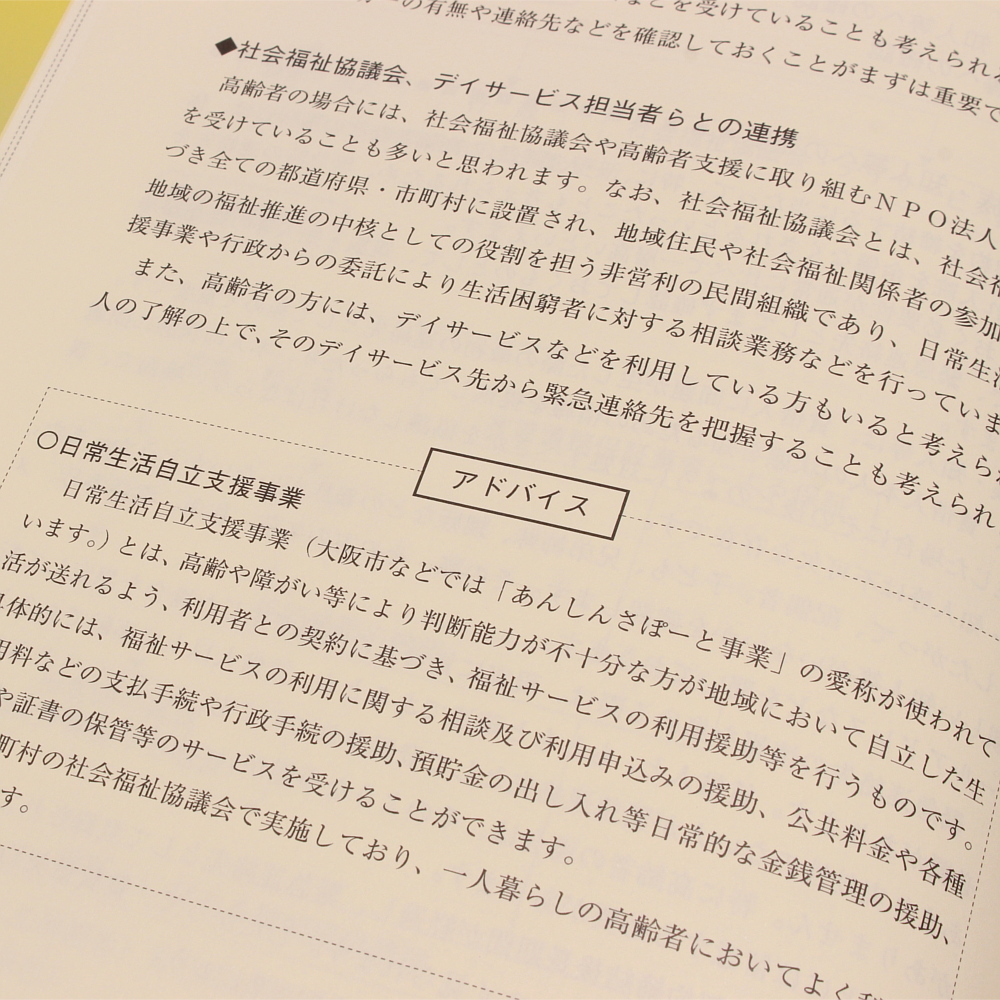 などを受けていることも考えられ
の有無や連絡先などを確認しておくことがまずは重要で
◆社会福祉協議会、デイサービス担当者らとの連携
高齢者の場合には、社会福祉協議会や高齢者支援に取り組むＮＰＯ法人
を受けていることも多いと思われます。なお、社会福祉協議会とは、社会福
づき全ての都道府県・市町村に設置され、地域住民や社会福祉関係者の参加
地域の福祉推進の中核としての役割を担う非営利の民間組織であり、日常生活
援事業や行政からの委託により生活困窮者に対する相談業務などを行っていま
また、高齢者の方には、デイサービスなどを利用している方もいると考えられ
人の了解の上で、そのデイサービス先から緊急連絡先を把握することも考えられ
アドバイス
〇日常生活自立支援事業
日常生活自立支援事業（大阪市などでは「あんしんさぽーと事業」の愛称が使われて
います。）とは、高齢や障がい等により判断能力が不十分な方が地域において自立した生
活が送れるよう、利用者との契約に基づき、福祉サービスの利用援助等を行うものです。
具体的には、福祉サービスの利用に関する相談及び利用申込みの援助、公共料金や各種
用料などの支払手続や行政手続の援助、預貯金の出し入れ等日常的な金銭管理の援助、
や証書の保管等のサービスを受けることができます。
町村の社会福祉協議会で実施しており、一人暮らしの高齢者においてよく利
す。